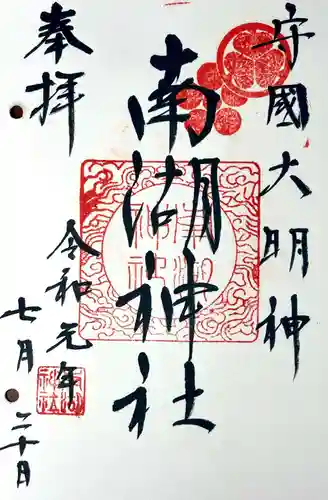 守國大明神
南湖神社
奉拝
令和元年
七月二十日